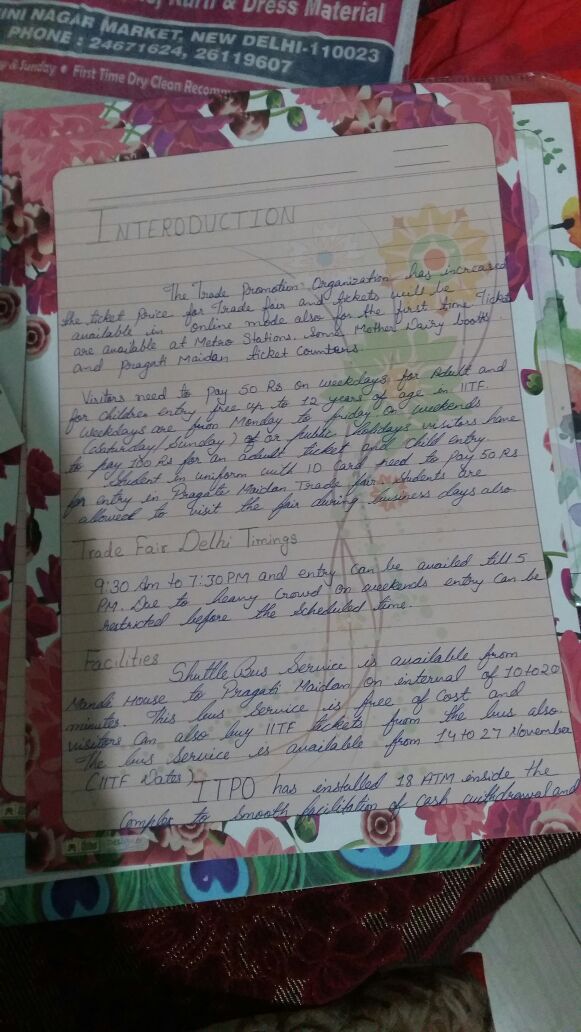 Kurti & Dress Material
INI NAGAR MARKET, NEW DELHI-110023
PHONE : 24671624, 26119607
y & Sunday • First Time Dry Clean Recomm
INTERODUCTION
The Trade Promotion Organization has increased
the ticket price for Trade fair and tickets will be
available in online mode also for the first time Ticket
are available at Metro Stations. Some Mother Dairy booths
and Pragati Maidan ticket Counters.
Visitors need to pay 50 Rs on weekdays for Adult and
for Children entry free up to 12 years of age in IITF.
Weekdays are from Monday to friday on weekends
(Saturday/Sunday) or public holidays visitors have
to pay 100 Rs for an adult ticket and child entry.
Student in uniform with ID card need to Pay 50 Rs
for entry in Pragati Maidan Trade fair. Students are
allowed to visit the fair during business days also.
Trade Fair Delhi Timings
9:30 Am to 7:30 PM and entry can be availed till 5
PM. Due to heavy Crowd on weekends entry can be
restricted before the Scheduled time.
Facilities
Shuttle Bus Service is available from
Mandi House to Pragati Maidan on interval of 10 to 20
minutes. This bus Service is free of Cost and
visitors Can also buy IITF tickets from the bus also
The bus Service is available from 14 to 27 November
(IITF Dates)
ITPO has installed 18 ATM inside the
Complex to Smooth facilitation of cash withdrawal and